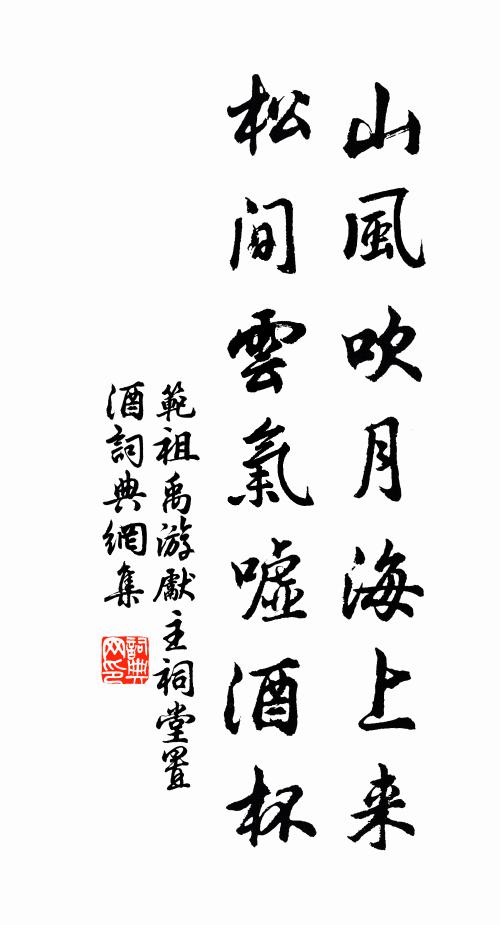 山風吹月海上来
松間雲氣噓酒杯
範祖禹游獻主祠堂置
酒詞典網集
詞典
网印